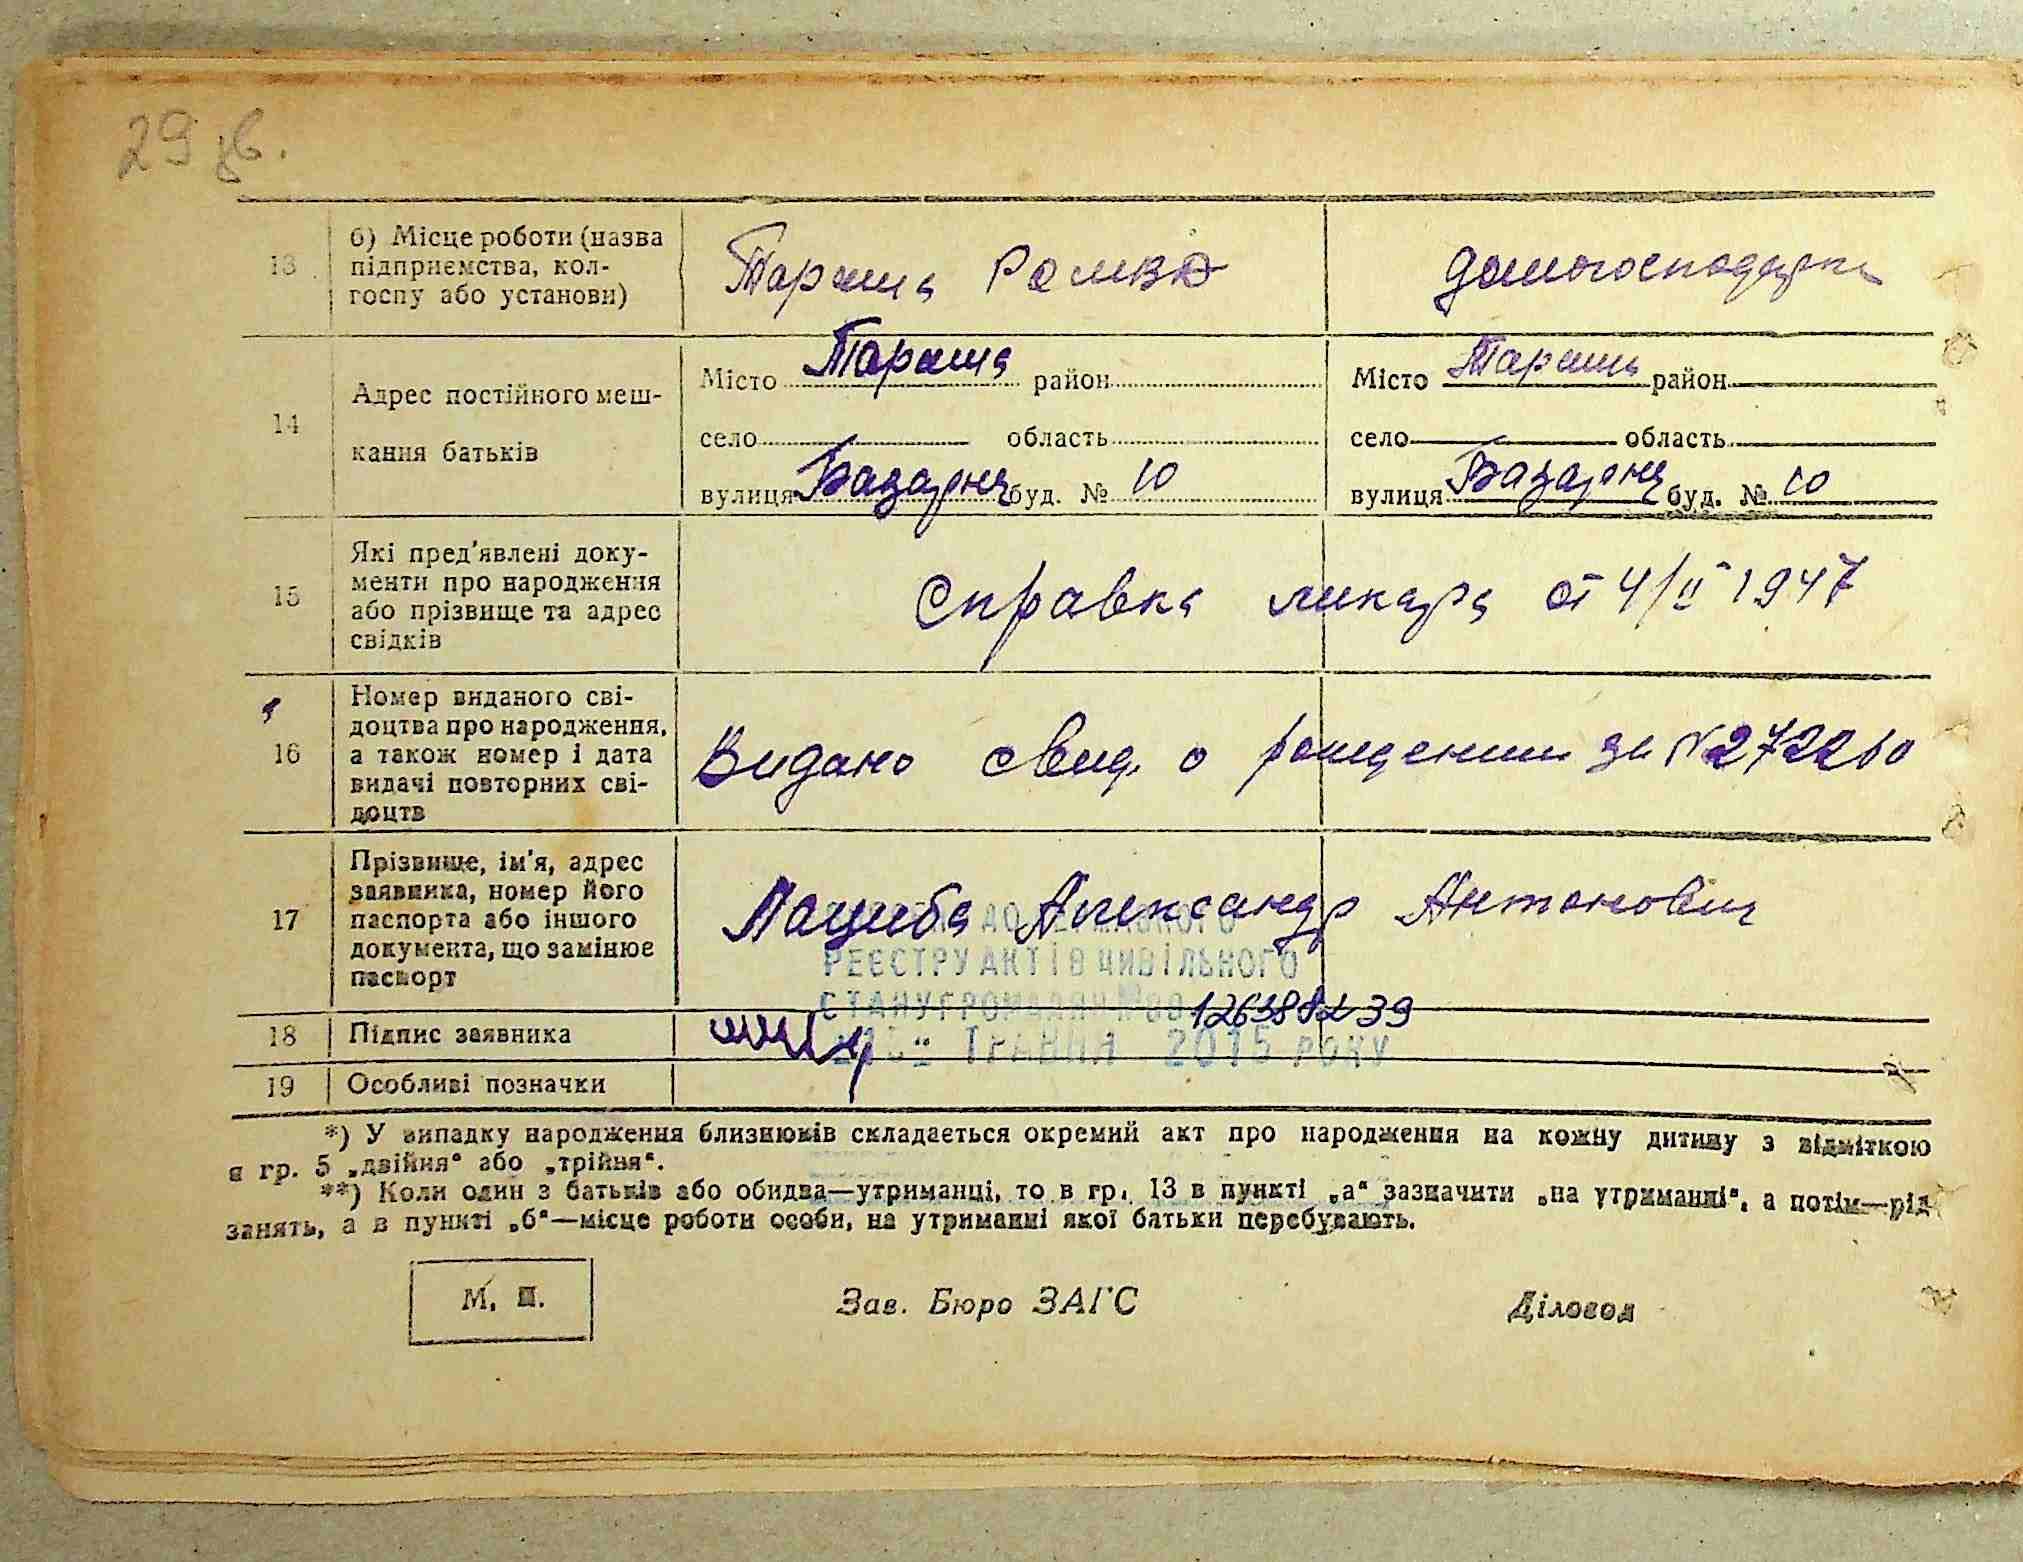 29 зв.
13 б) Місце роботи (назва
підприємства, кол-
госпу або установи)
Тараща РОМВД домогосподарка
14 Адрес постійного меш-
кання батьків
Місто Тараща район Місто Тараща район
село область село область
вулиця Базарня буд. № 10 вулиця Базарня буд. № 10
15 Які пред'явлені доку-
менти про народження
або прізвище та адрес
свідків
Справка ликаря от 4/II 1947
16 Номер виданого сві-
доцтва про народження,
а також номер і дата
видачі повторних сві-
доцтв
Видано свид. о рождении за № 272260
17 Прізвище, ім'я, адрес
заявника, номер його
паспорта або іншого
документа, що замінює
паспорт
Пациба Александр Антонович
ДО
РЕЄСТРУ АКТІВ ЦИВІЛЬНОГО
СТАНУ ГРОМАДЯН №00
ТРАВНЯ 2015 РОКУ
18 Підпис заявника
19 Особливі позначки
*) У випадку народження близнюків складається окремий акт про народження на кожну дитину з відміткою
в гр. 5 „двійня" або „трійня".
**) Коли один з батьків або обидва—утриманці, то в гр. 13 в пункті „а" зазначити „на утриманні", а потім—рід
занять, а в пункті „б"—місце роботи особи, на утриманні якої батьки перебувають.
М. П. Зав. Бюро ЗАГС Діловод